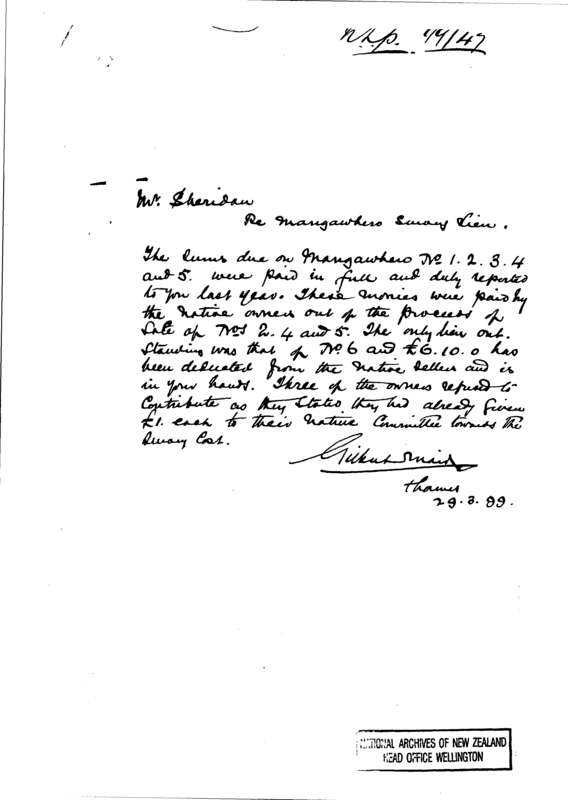 N.L.P. 99/47
Mr. Sheridan
Re Mangawhero Survey Lien.
The sums due on Mangawhero No 1. 2. 3. 4
and 5. were paid in full and duly reported
to you last year. These monies were paid by
the native owners out of the proceeds of
Sale of Nos 2. 4 and 5. The only lien out.
standing was that of No 6 and £6. 10. 0 has
been deducted from the Native Sellers and is
in your hands. Three of the owners refused to
Contribute as they stated they had already given
£1. each to their Native Committee towards the
Survey Cost.
Gilbert Mair
Thames
29. 3. 99.
NATIONAL ARCHIVES OF NEW ZEALAND
HEAD OFFICE WELLINGTON